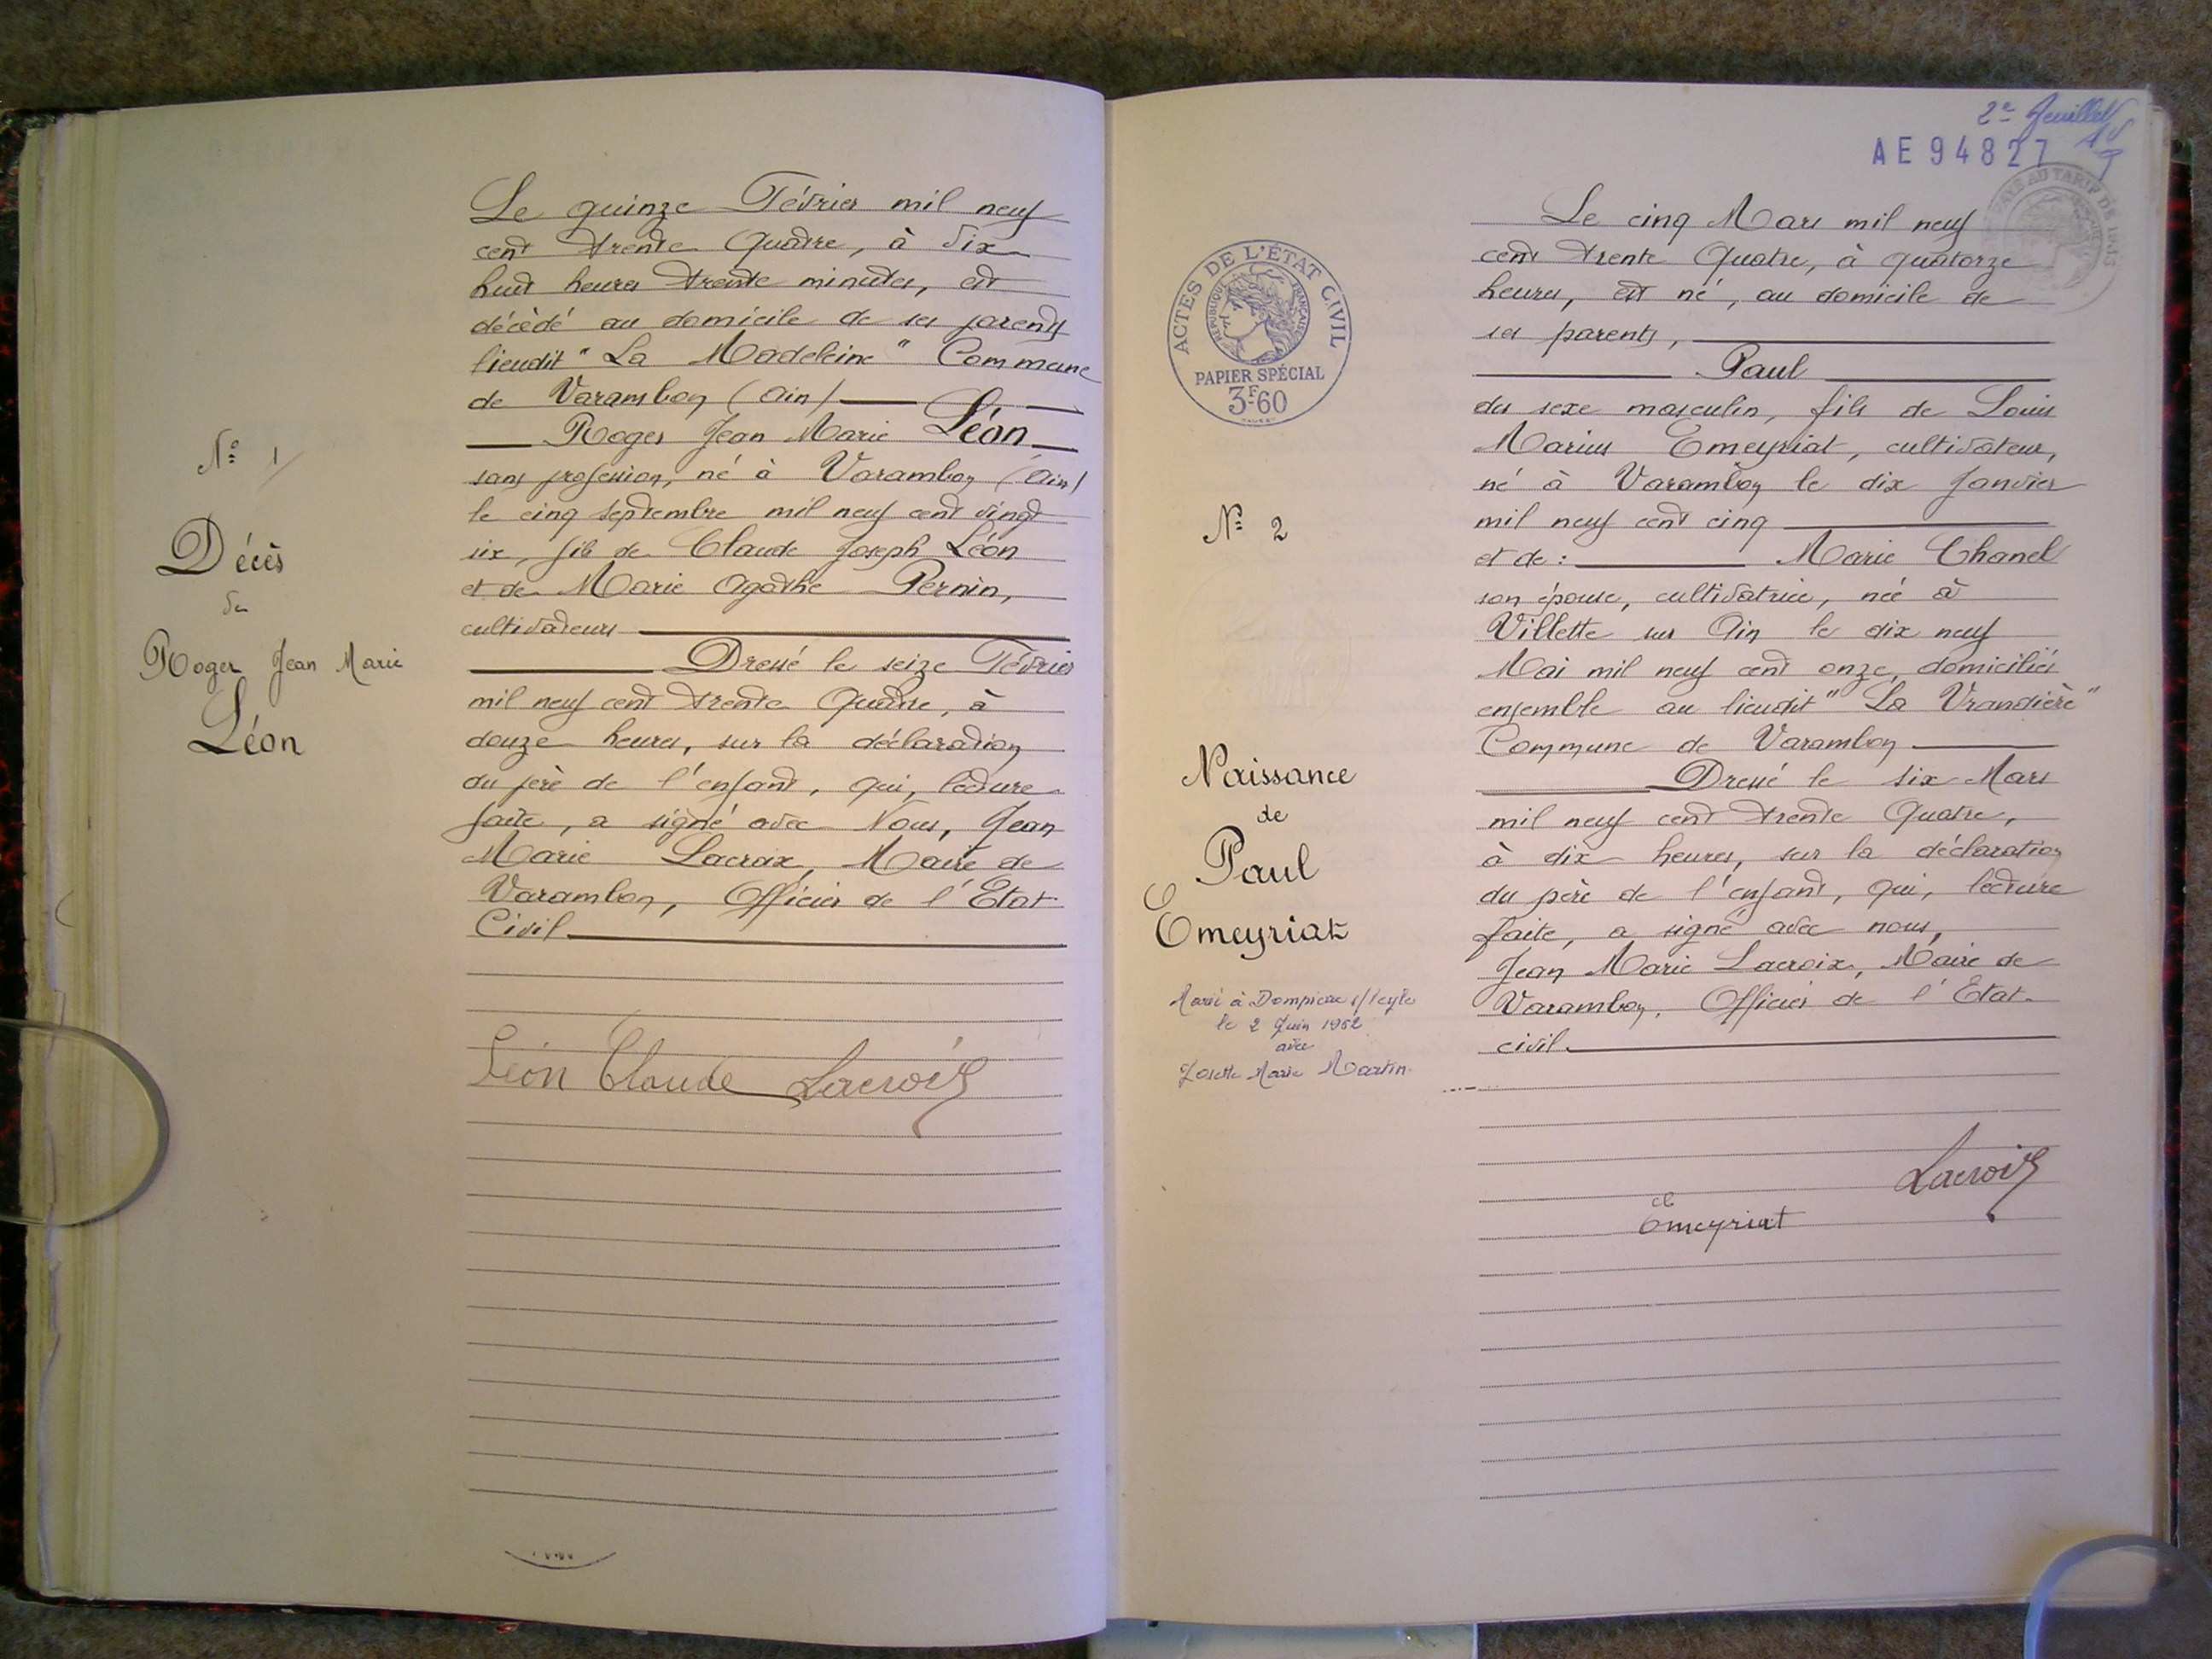 N° 1
Décès
de
Roger Jean Marie
Léon
Le quinze Février mil neuf
cent trente quatre, à dix
huit heures trente minutes, est
décédé au domicile de ses parents
lieudit "La Madeleine" Commune
de Varambon (Ain)
Roger Jean Marie Léon
sans profession, né à Varambon (Ain)
le cinq septembre mil neuf cent vingt
six, fils de Claude Joseph Léon
et de Marie Agathe Pernin,
cultivateurs
Dressé le seize Février
mil neuf cent trente quatre, à
douze heures, sur la déclaration
du père de l'enfant, qui, lecture
faite, a signé avec Nous, Jean
Marie Lacroix, Maire de
Varambon, Officier de l'Etat
Civil
Léon Claude Lacroix
2e feuillet
AE94827
PAYÉ AU TARIF DE
ACTES DE L'ÉTAT CIVIL
RÉPUBLIQUE FRANÇAISE
PAPIER SPÉCIAL
3F60
N° 2
Naissance
de
Paul
Emeyriat
Marié à Dompierre s/Veyle
le 2 Juin 1962
avec
Josette Marie Martin
Le cinq Mars mil neuf
cent trente quatre, à quatorze
heures, est né, au domicile de
ses parents,
Paul
du sexe masculin, fils de Louis
Marius Emeyriat, cultivateur,
né à Varambon le dix Janvier
mil neuf cent cinq
et de : Marie Chanel
son épouse, cultivatrice, née à
Villette sur Ain le dix neuf
Mai mil neuf cent onze, domiciliés
ensemble au lieudit "La Vrandière"
Commune de Varambon
Dressé le six Mars
mil neuf cent trente quatre,
à dix heures, sur la déclaration
du père de l'enfant, qui, lecture
faite, a signé avec nous,
Jean Marie Lacroix, Maire de
Varambon, Officier de l'Etat
civil.
Lacroix
Emeyriat